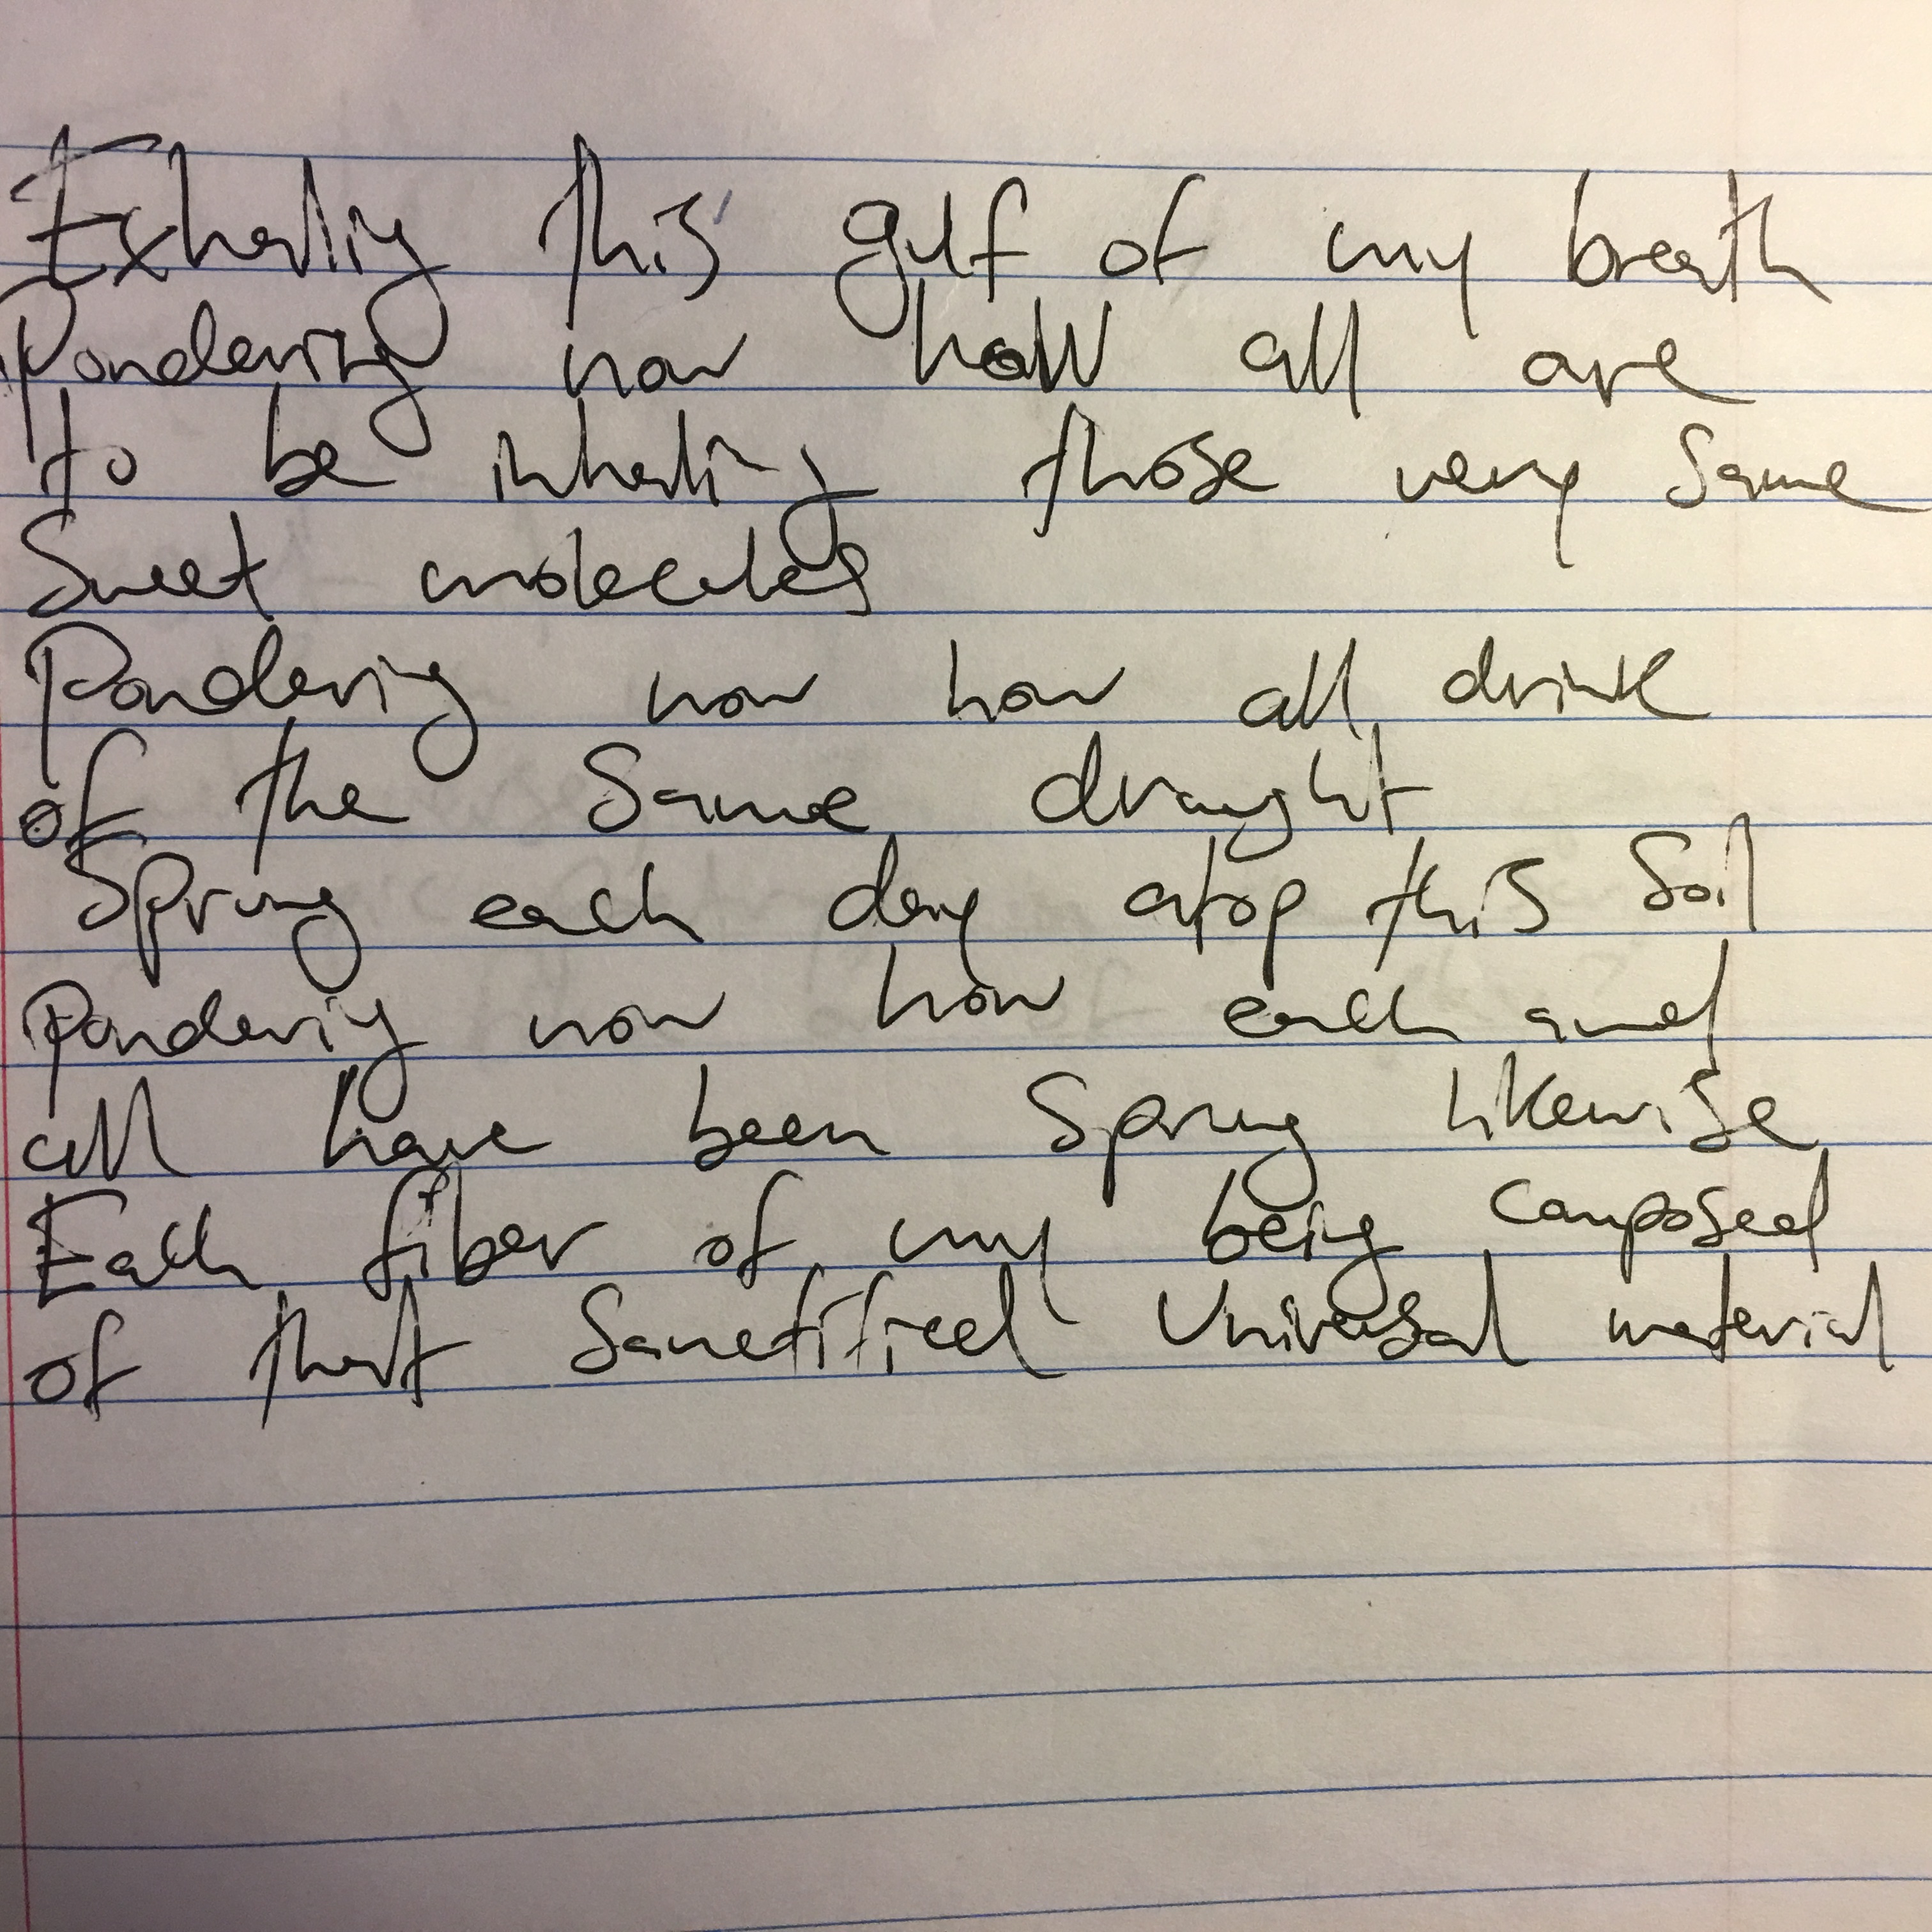 Exhaling this gulf of my breath
Pondering now how all are
to be inhaling those very same
Sweet molecules
Pondering now how all drink
of the Same draught
Sprung each day atop this Soil
Pondering now how each and
all have been Sprung likewise
Each fiber of my being composed
of that Sanctified Universal material